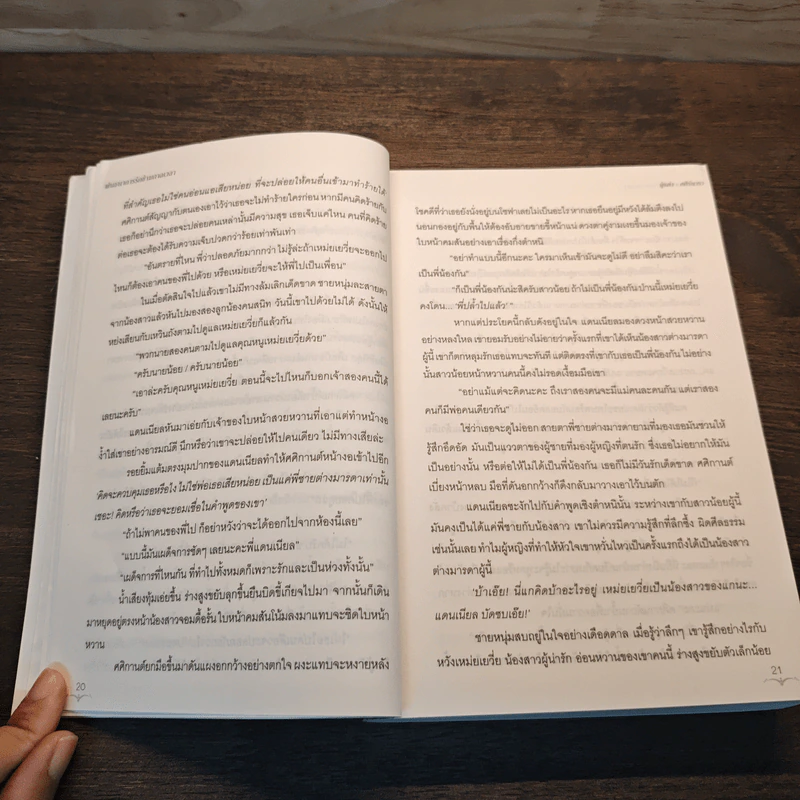 ที่สำคัญเธอไม่ใช่คนอ่อนแอเสียหน่อย ที่จะปล่อยให้คนอื่นเข้ามาทำร้ายได้
ศศิกานต์สัญญากับตนเองเอาไว้ว่าเธอจะไม่ทำร้ายใครก่อน หากมีคนคิดร้ายกับ
เธอก็อย่านึกว่าเธอจะปล่อยคนเหล่านั้นมีความสุข เธอเจ็บแค่ไหน คนที่คิดร้าย
ต่อเธอจะต้องได้รับความเจ็บปวดกว่าร้อยเท่าพันเท่า
“อันตรายที่ไหน พี่ว่าปลอดภัยมากกว่า ไม่รู้ล่ะถ้าเหม่ยเยวี่ยจะออกไป
ไหนก็ต้องเอาคนของพี่ไปด้วย หรือเหม่ยเยวี่ยจะให้พี่ไปเป็นเพื่อน”
ในเมื่อตัดสินใจไปแล้วเขาไม่มีทางล้มเลิกเด็ดขาด ชายหนุ่มละสายตา
จากน้องสาวแล้วหันไปมองสองลูกน้องคนสนิท วันนี้เขาไปด้วยไม่ได้ ดังนั้นให้
หย่งเสียนกับเหวินถังตามไปดูแลเหม่ยเยวี่ยก็แล้วกัน
“พวกนายสองคนตามไปดูแลคุณหนูเหม่ยเยวี่ยด้วย”
“ครับนายน้อย / ครับนายน้อย”
“เอาล่ะครับคุณหนูเหม่ยเยวี่ย ตอนนี้จะไปไหนก็บอกเจ้าสองคนนี้ได้
เลยนะครับ”
แดนเนียลหันมาเอ่ยกับเจ้าของใบหน้าสวยหวานที่เอาแต่ทำหน้างอ
ง้ำใส่เขาอย่างอารมณ์ดี นึกหรือว่าเขาจะปล่อยให้ไปคนเดียว ไม่มีทางเสียล่ะ
รอยยิ้มแต้มตรงมุมปากของแดนเนียลทำให้ศศิกานต์หน้างอเข้าไปอีก
‘คิดจะควบคุมเธอหรือไง ไม่ใช่พ่อเธอเสียหน่อย เป็นแค่พี่ชายต่างมารดาเท่านั้น
เชอะ! คิดหรือว่าเธอจะยอมเชื่อในคำพูดของเขา’
“ถ้าไม่พาคนของพี่ไป ก็อย่าหวังว่าจะได้ออกไปจากห้องนี้เลย”
“แบบนี้มันเผด็จการชัดๆ เลยนะคะพี่แดนเนียล”
“เผด็จการที่ไหนกัน ที่ทำไปทั้งหมดก็เพราะรักและเป็นห่วงทั้งนั้น”
น้ำเสียงทุ้มเอ่ยขึ้น ร่างสูงขยับลุกขึ้นยืนบิดขี้เกียจไปมา จากนั้นก็เดิน
มาหยุดอยู่ตรงหน้าน้องสาวจอมดื้อรั้น ใบหน้าคมสันโน้มลงมาแทบจะชิดใบหน้า
หวาน
ศศิกานต์ยกมือขึ้นมาดันแผงอกกว้างอย่างตกใจ ผงะแทบจะหงายหลัง
20
โชคดีที่ว่าเธอยังนั่งอยู่บนโซฟาเลยไม่เป็นอะไร หากเธอยืนอยู่มีหวังได้ล้มตึงลงไป
นอนกองอยู่กับพื้นให้ต้องอับอายขายขี้หน้าแน่ ดวงตาคู่งามเงยขึ้นมองเจ้าของ
ใบหน้าคมสันอย่างเอาเรื่องกึ่งตำหนิ
“อย่าทำแบบนี้อีกนะคะ ใครมาเห็นเข้ามันจะดูไม่ดี อย่าลืมสิคะว่าเรา
เป็นพี่น้องกัน”
“ก็เป็นพี่น้องกันน่ะสิครับสาวน้อย ถ้าไม่เป็นพี่น้องกันป่านนี้เหม่ยเยวี่ย
คงโดน... ‘พี่ปล้ำไปแล้ว’ ”
หากแต่ประโยคนี้กลับดังอยู่ในใจ แดนเนียลมองดวงหน้าสวยหวาน
อย่างหลงใหล เขายอมรับอย่างไม่อายว่าครั้งแรกที่เขาได้เห็นน้องสาวต่างมารดา
ผู้นี้ เขาก็ตกหลุมรักเธอแทบจะทันที แต่ติดตรงที่เขากับเธอเป็นพี่น้องกัน ไม่อย่าง
นั้นสาวน้อยหน้าหวานคนนี้คงไม่รอดเงื้อมมือเขา
“อย่าแม้แต่จะคิดนะคะ ถึงเราสองคนจะมีแม่คนละคนกัน แต่เราสอง
คนก็มีพ่อคนเดียวกัน”
ใช่ว่าเธอจะดูไม่ออก สายตาพี่ชายต่างมารดายามที่มองเธอมันชวนให้
รู้สึกอึดอัด มันเป็นแววตาของผู้ชายที่มองผู้หญิงที่ตนรัก ซึ่งเธอไม่อยากให้มัน
เป็นอย่างนั้น หรือต่อให้ไม่ได้เป็นพี่น้องกัน เธอก็ไม่มีวันรักเด็ดขาด ศศิกานต์
เบี่ยงหน้าหลบ มือที่ดันอกกว้างก็ดึงกลับมาวางเอาไว้บนตัก
แดนเนียลชะงักไปกับคำพูดเชิงตำหนินั้น ระหว่างเขากับสาวน้อยผู้นี้
มันคงเป็นได้แค่พี่ชายกับน้องสาว เขาไม่ควรมีความรู้สึกที่ลึกซึ้ง ผิดศีลธรรม
เช่นนั้นเลย ทำไมผู้หญิงที่ทำให้หัวใจเขาหวั่นไหวเป็นครั้งแรกถึงได้เป็นน้องสาว
ต่างมารดาผู้นี้
‘บ้าเอ๊ย! นี่แกคิดบ้าอะไรอยู่ เหม่ยเยวี่ยเป็นน้องสาวของแกนะ...
แดนเนียล บัดซบเอ๊ย!’
ชายหนุ่มสบถอยู่ในใจอย่างเดือดดาล เมื่อรู้ว่าลึกๆ เขารู้สึกอย่างไรกับ
หวังเหม่ยเยวี่ย น้องสาวผู้น่ารัก อ่อนหวานของเขาคนนี้ ร่างสูงขยับตัวเล็กน้อย
21